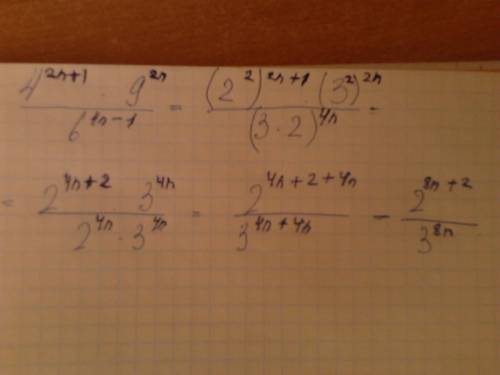 4^{2n+1} · 9^{2n} / 6^{4n-1} = (2^2)^{2n+1} · (3^2)^{2n} / (3·2)^{4n} =
= 2^{4n+2} · 3^{4n} / 2^{4n} · 3^{4n} = 2^{4n+2+4n} / 3^{4n+4n} = 2^{8n+2} / 3^{8n}